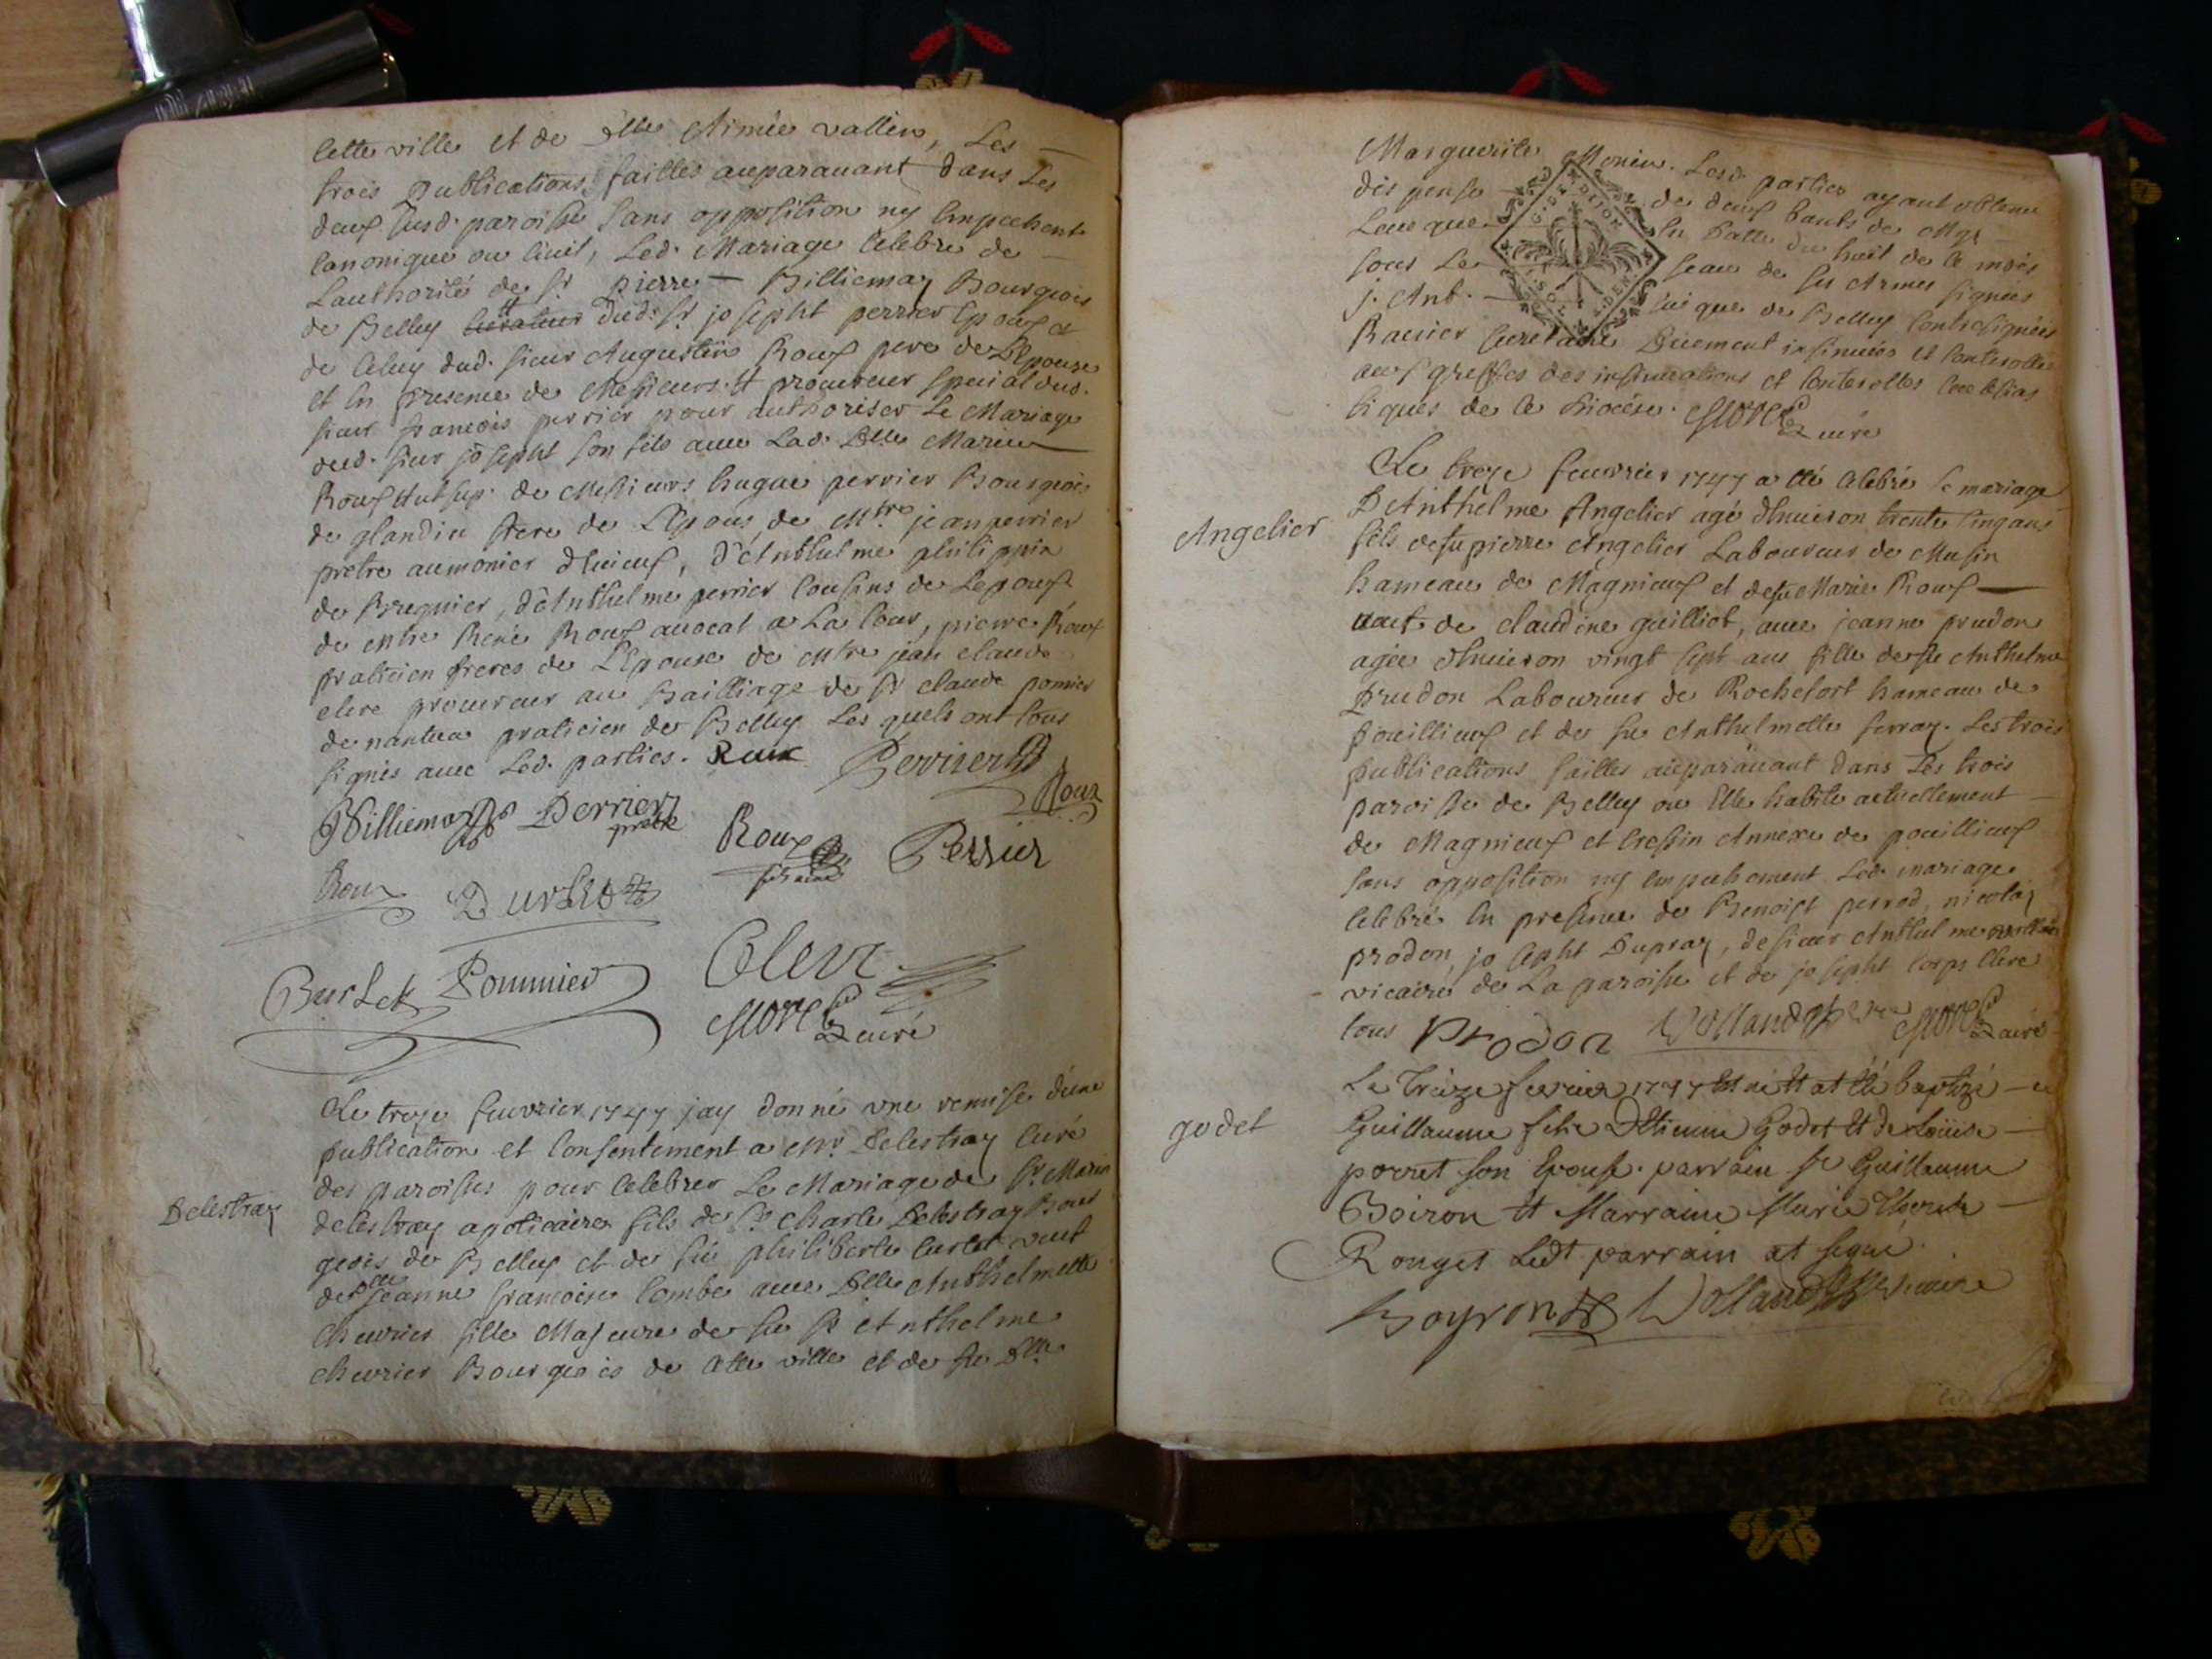 cette ville et de Dlle Aimée vallin, Les
trois publications faittes auparauant dans Les
deux susd. paroisse sans opposition ny empechent
canonique ou ciuil, Led. Mariage celebré de
Lauthorité de sr pierre Billiemaz Bourgeois
de Belley curateur dud. sr josepht perrier epoux et
de celuy dud. sieur Augustin Roux pere de L'Epouse
et en presence de Messieurs. procureur special dud.
sieur francois perrier pour authoriser Le Mariage
dud. sieur josepht son fils auec Lad. Dlle Marie
Roux de Messieurs hugue perrier Bourgeois
de glandieu frere de L'Epoux, de Mtre jean perrier
pretre aumonier d'Lieu, d'Anthelme philippin
de Bregnier, d'Anthelme perrier cousins de Lepoux
de Mtre René Roux auocat a La Cour, pierre Roux
praticien freres de L'Epouse de Mtre jean claude
clerc procureur au Bailliage de sr claude pomier
de nantua praticien de Belley Les quels ont tous
signés auec Led. parties. Roux Perrier
Roux
Billiemaz Perrier
pretre
Roux
fils ainé
Perrier
Roux
Burlet Pommier Clerc
Morel
curé
Delestraz
Le treze feuurier 1747 jay donné vne remise d'une
publication et consentement a Mr. Delestraz Curé
des paroisses pour celebrer Le Mariage de sr Marin
delestraz apoticaire fils de sr Charle Delestraz Bour
geois de Belley et de füe philiberte curtet veuf
de Dlle jeanne francoise Combe auec Dlle Anthelmette
cheurier fille Majeure de fu sr Anthelme
cheurier Bourgeois de cette ville et de fu Dlle
Marguerite Monin. Lesd. parties ayant obtenu
dispense de deux bants de Mgr
Leueque en datte du huit de ce mois
sous Le seau de ses Armes signées
j. Ant. euique de Belley Contresignées
Rauier secretaire Düement insinuées et Conterollée
aux greffes des insinuations et Conterolles Ecclesias
tiques de ce diocése. Morel
curé
Angelier
Le treze feuurier 1747 a été celebré le mariage
D'Anthelme Angelier agé d'Enuiron trente cinq ans
fils de fu pierre Angelier Laboureur de Musin
hameau de Magnieux et de fu Marie Roux
veuf de claudine guilliot, auec jeanne prudon
agée d'Enuiron vingt sept ans fille de fu Anthelme
Prudon Laboureur de Rochefort hameau de
pouillieux et de fu Anthelmette ferraz. Les trois
publications faittes auparauant dans Les trois
paroisse de Belley ou Elle habite actuellement
de Magnieux et Cressin Annexe de pouillieux
sans opposition ny empechement Led. mariage
celebré En presence de Benoist perrod, nicolas
prodon, josepht Dupraz, de sieur Anthelme vollan
vicaire de La paroisse et de josepht Corps Clerc
tous Prodon Volland Morel
curé
godet
Le Treize fevrier 1747 Est né Et at Eté baptizé
Guillaume fils D'Etienne Godet Et de Loüise
porret son Epouse. parrain sr Guillaume
Boiron Et Marraine Marie Therese
Rouget Ledt parrain at signé
Boyron Volland vicaire